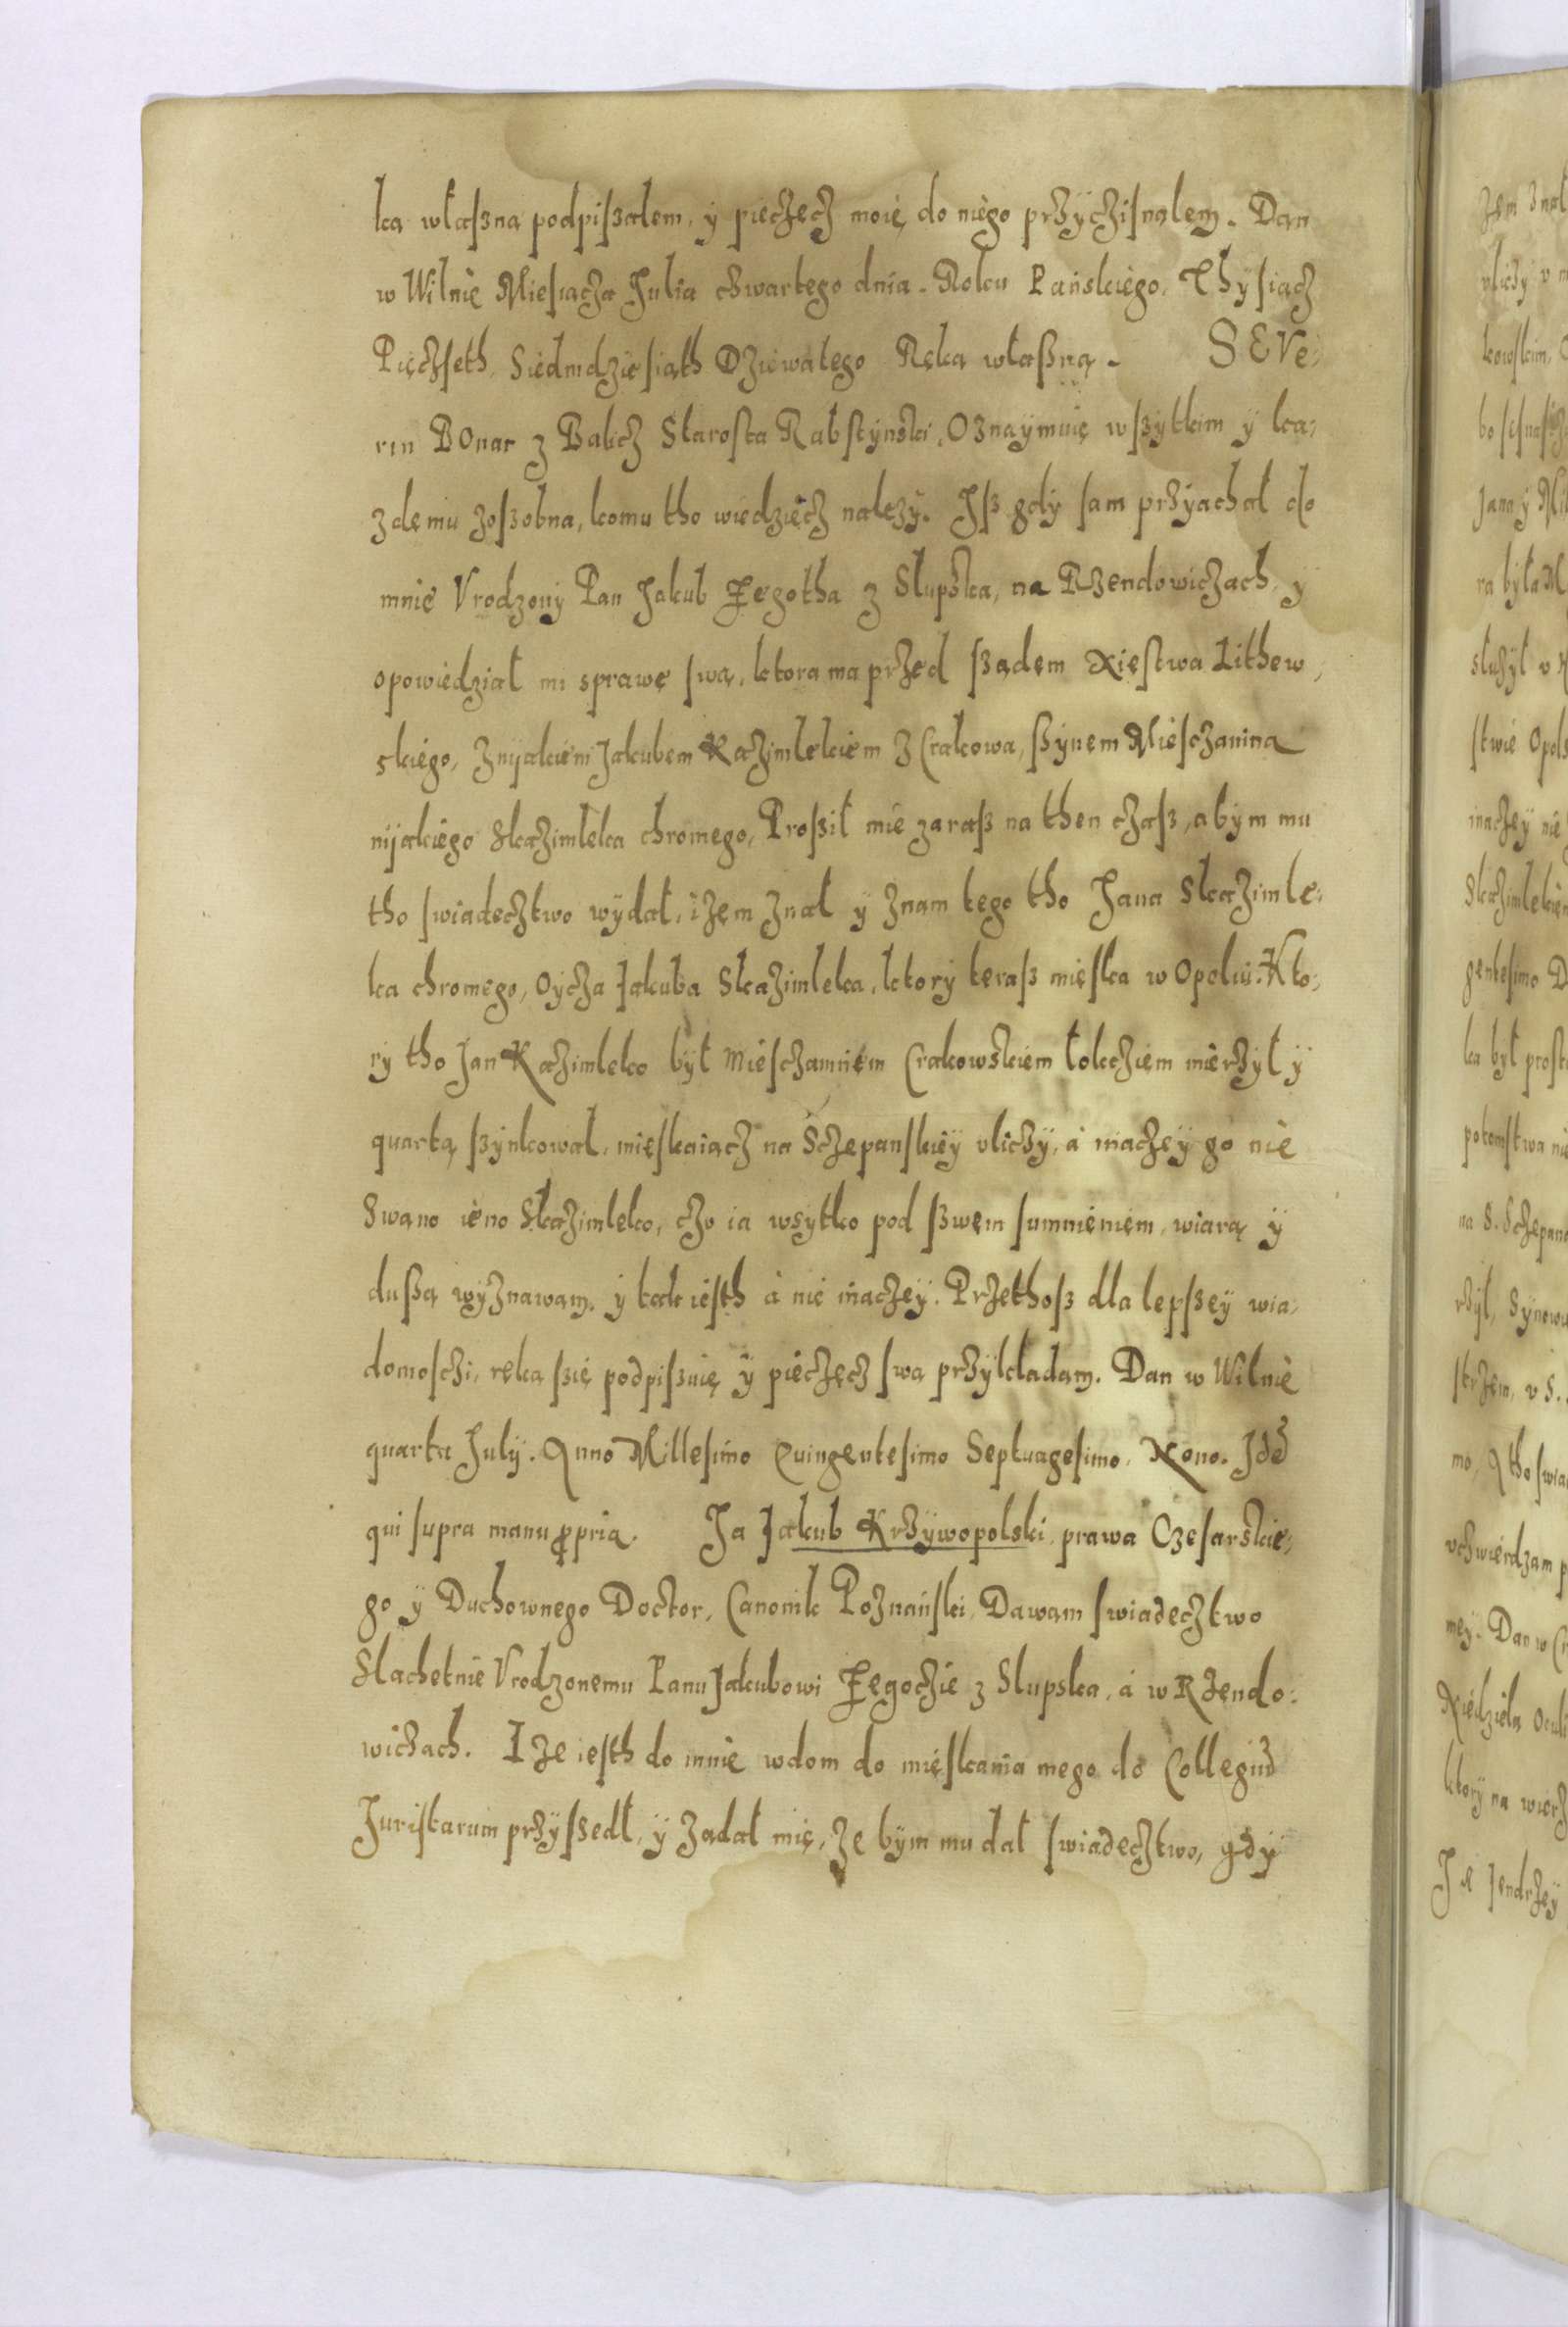 ką własną podpisałem, y pieczęcz moię do niego przyczisnąłem. Dan
w Wilnie Miesiącza Julia czwartego dnia. Roku Pańskiego. Thysiącz
Pięczseth, Siedmdziesiąth Dziewatego Ręką własną. SEVe-
rin BOnar z Balicz Starosta Rabstynski, Oznaymuię wszytkim y ka-
zdemu zosobna, komu tho wiedziecz należy. Isz gdy sam przyachał do
mnie Vrodzony Pan Jakub Żegotha z Slupska, na Rzendowiczach, y
opowiedział mi sprawę swą, ktorą ma przed sządem Xięstwa Lithew-
skiego, z nyakiem Jakubem Kaźimlekiem z Crakowa, synem Miesczanina
nyakiego Skaźimleka chromego, Prosił mie zarasz na then czasz, abym mu
tho swiadecztwo wydał, iżem znał y znam tego tho Jana Skaźimle-
ka chromego, Oycza Jakuba Skaźimleka, ktory terasz mięska w Opoliu. Kto-
ry tho Jan Kaźimleko był Miesczaninem Crakowskiem łokcziem mierzył y
quartą szynkował, mięskaiącz na Sczepanskiey vliczy, á inaczey go nie
Swano ieno Skaźimleko, czo ia wsytko pod szwem sumnieniem, wiarą y
duszą wyznawam. y tak iesth á nie inaczey. Przethosz dla lepszey wia-
domosczi, ręką szię podpiszuię y pieczęcz swą przykładam. Dan w Wilnie
quarta July. Anno Millesimo Quingentesimo Septuagesimo. Nono. Idē
qui supra manu ꝓpria. Ja Jakub Krzywopolski, prawa Czesarskie-
go y Duchownego Doctor, Canonik Poznański, Dawam swiadecztwo
Slachetnie Vrodzonemu Panu Jakubowi Żegoczie z Slupska, á w Rzendo-
wiczach. Iże iesth do mnie w dom do mięskania mego do Collegiū
Juristarum przyszedł, y żądał mię, że bym mu dał swiadecztwo, gdy